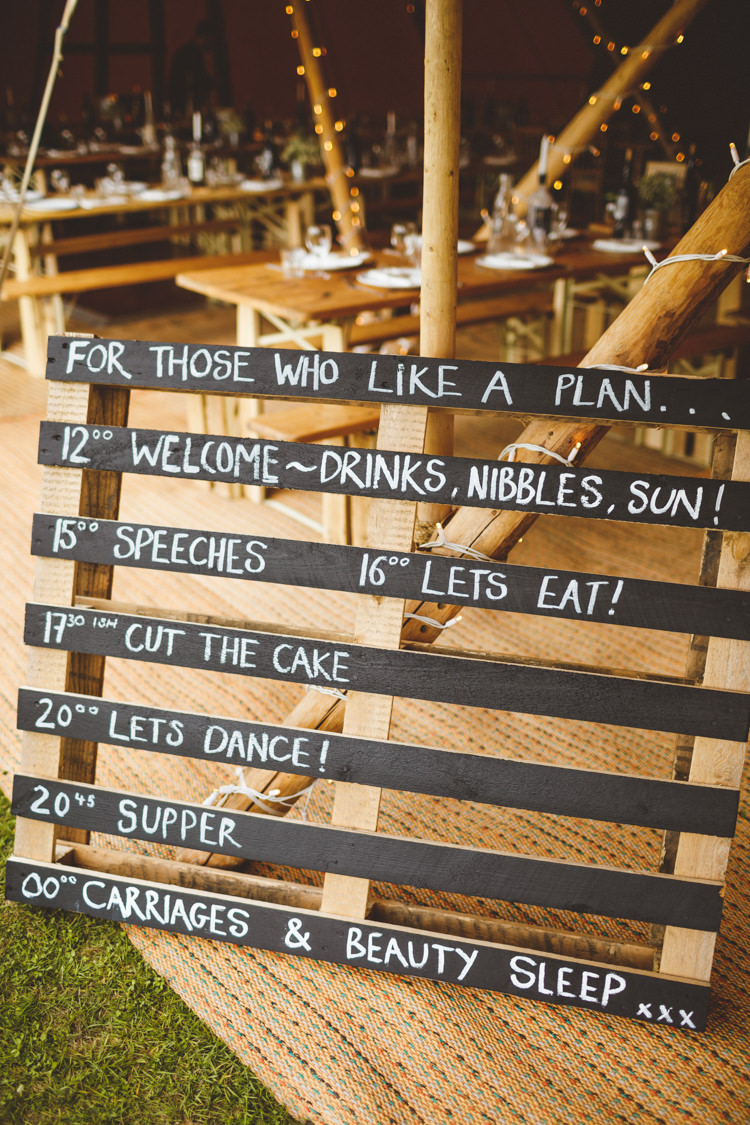 FOR THOSE WHO LIKE A PLAN....
12⁰⁰ WELCOME~DRINKS, NIBBLES, SUN!
15⁰⁰ SPEECHES 16⁰⁰ LETS EAT!
17³⁰ ISH CUT THE CAKE
20⁰⁰ LETS DANCE!
20⁴⁵ SUPPER
00⁰⁰ CARRIAGES & BEAUTY SLEEP xxx